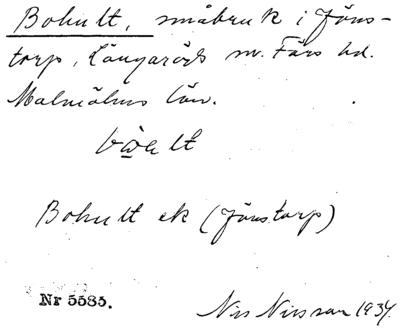 Bohult, småbruk i Jöns-
torp, Långaröds sn. Färs hd.
Malmöhus län.
Bohult ek (Jönstorp)
Nr 5585.
Nils Nilsson 1934.